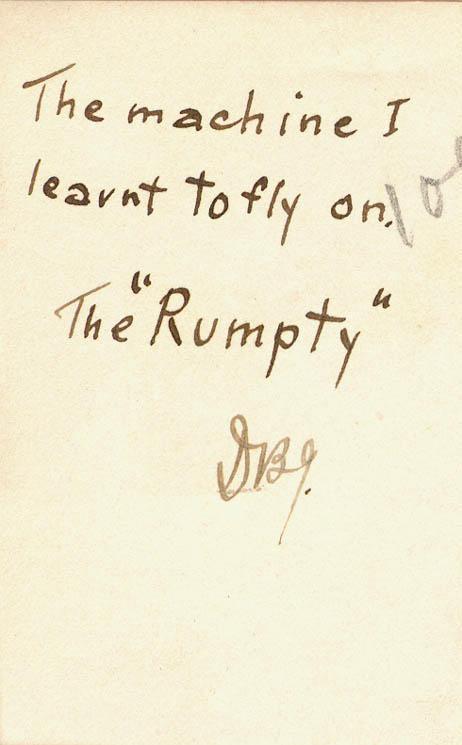 The machine I
learnt to fly on.
The "Rumpty"